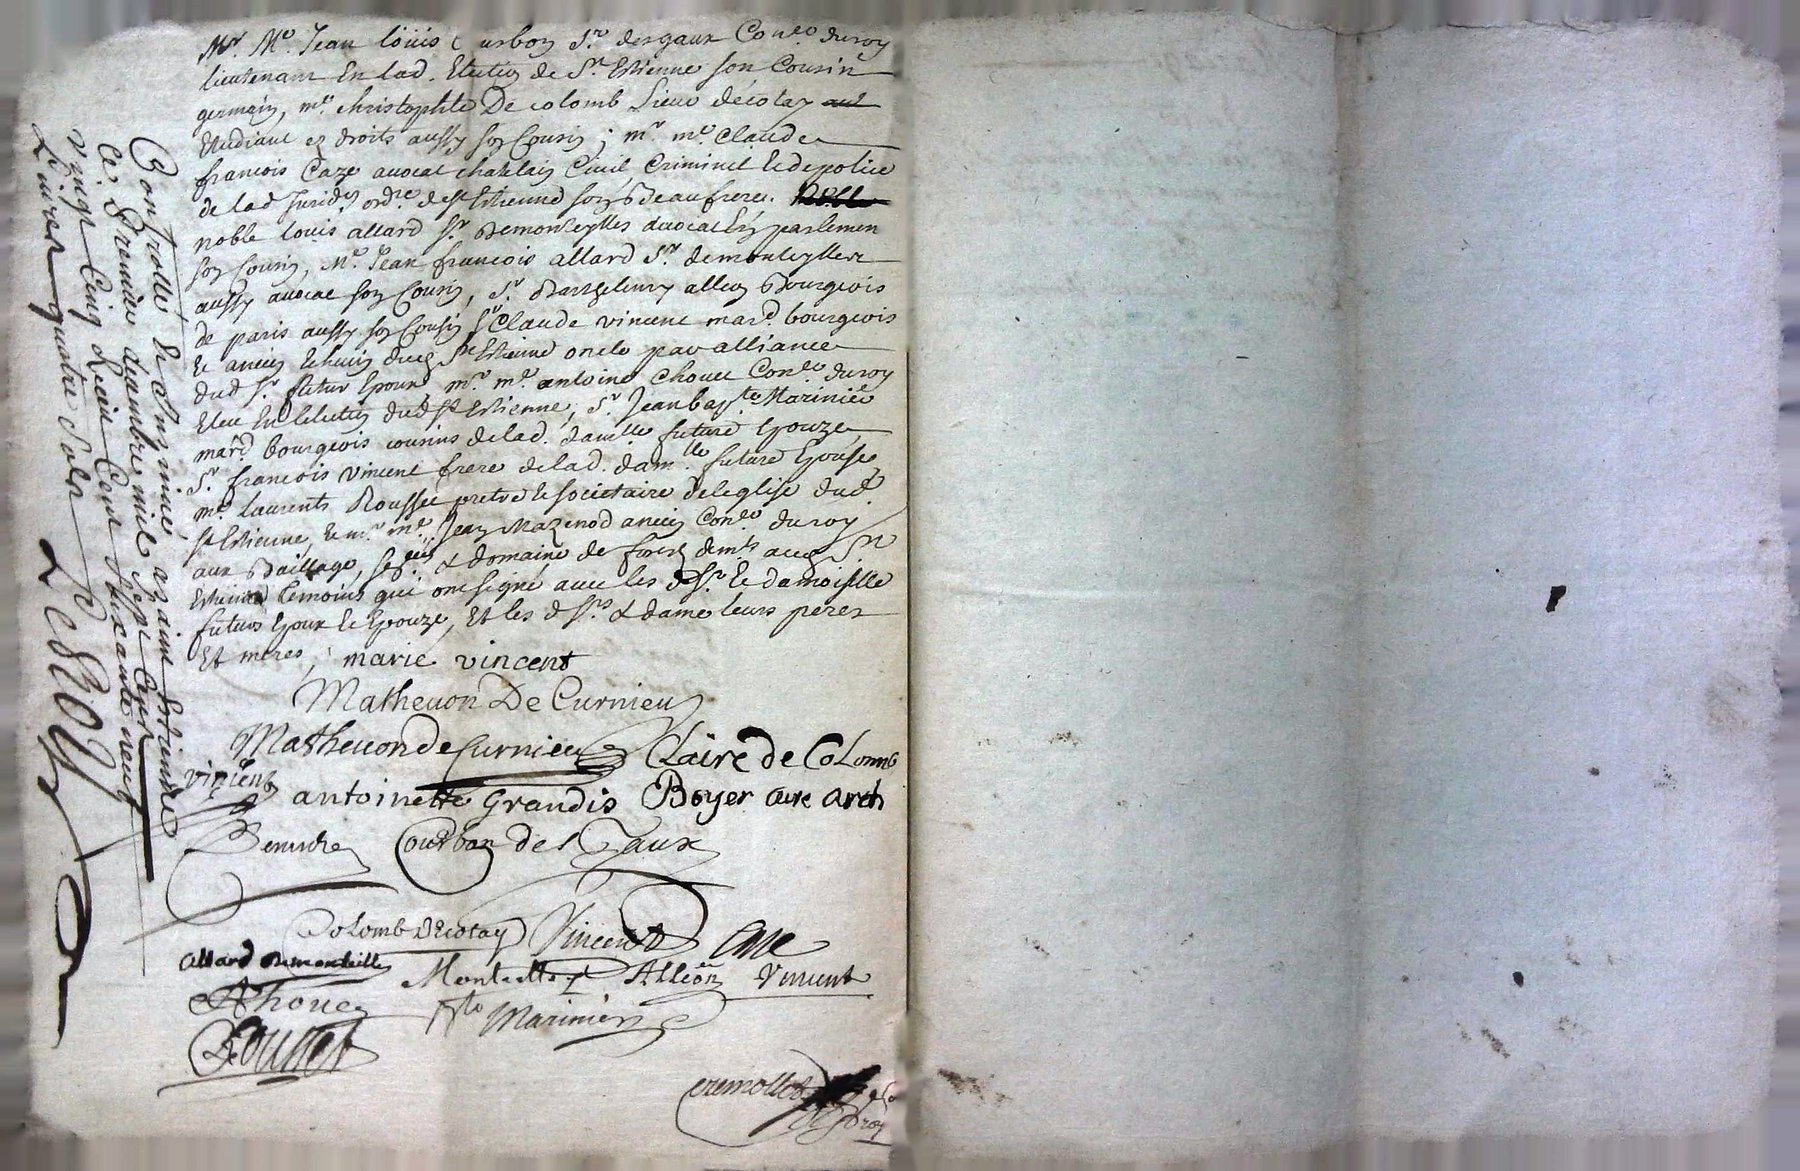 Mr Me. Jean loüis Courbon Sr. desgaux Conler duroy
lieutenant En lad. Election de St. Estienne son Cousin
germain, mre christophle De colomb Sieur décotay
Etudiant ez droits aussy son Cousin ; mr me Claude
francois Caze avocat chatelain Civil Criminel et de police
de lad Jurid. ordre. de st Estienne son Beaufrere.
noble louis allard Sr. Demonteylles avocat En parlemen
son Cousin, Me. Jean francois allard Sr. demonteylles
aussy avocat son Cousin, Sr. alleon Bourgeois
de paris aussy son Cousin Sr Claude vincent mard. bourgeois
et ancien Echevin dud St Estienne oncle par alliance
dud Sr. futur Epoux mr. me. antoine Chovet Conler duroy
Eleu En l'election dud St Estienne, Sr. Jean bapte Mariniér
mard bourgeois cousins de lad. damlle future Epouze
Sr. francois vincent frere de lad. damlle future Epouse
mre laurents Rousset pretre et societaire de leglise dud.
St Estienne, et mr. me. Jean Mazenod ancien Conler du roy
aux Baillage, & domaine de forest demt. aud St
Estienne temoins qui ont signé avec les d Sr. et damoiselle
futurs Epoux et Epouze, Et les d Srs & dame leurs peres
Et meres ; marie vincent
Mathevon De Curnieu
Mathevon de Curnieu Claire de Colomb
vincent antoinette Grandis Boyer Curé arch
Courbon des Gaux
Colomb Decotay Vincent Caze
allard Demonteilles Monteilles Alléon Vincent
Chovet Mariniér
Rousset
Controllé et Insinué a saint Estienne
Ce Premier decembre mil Sept Cent
vingt Cinq Receu Cent soixante neuf
Livres quatre sols Leroy